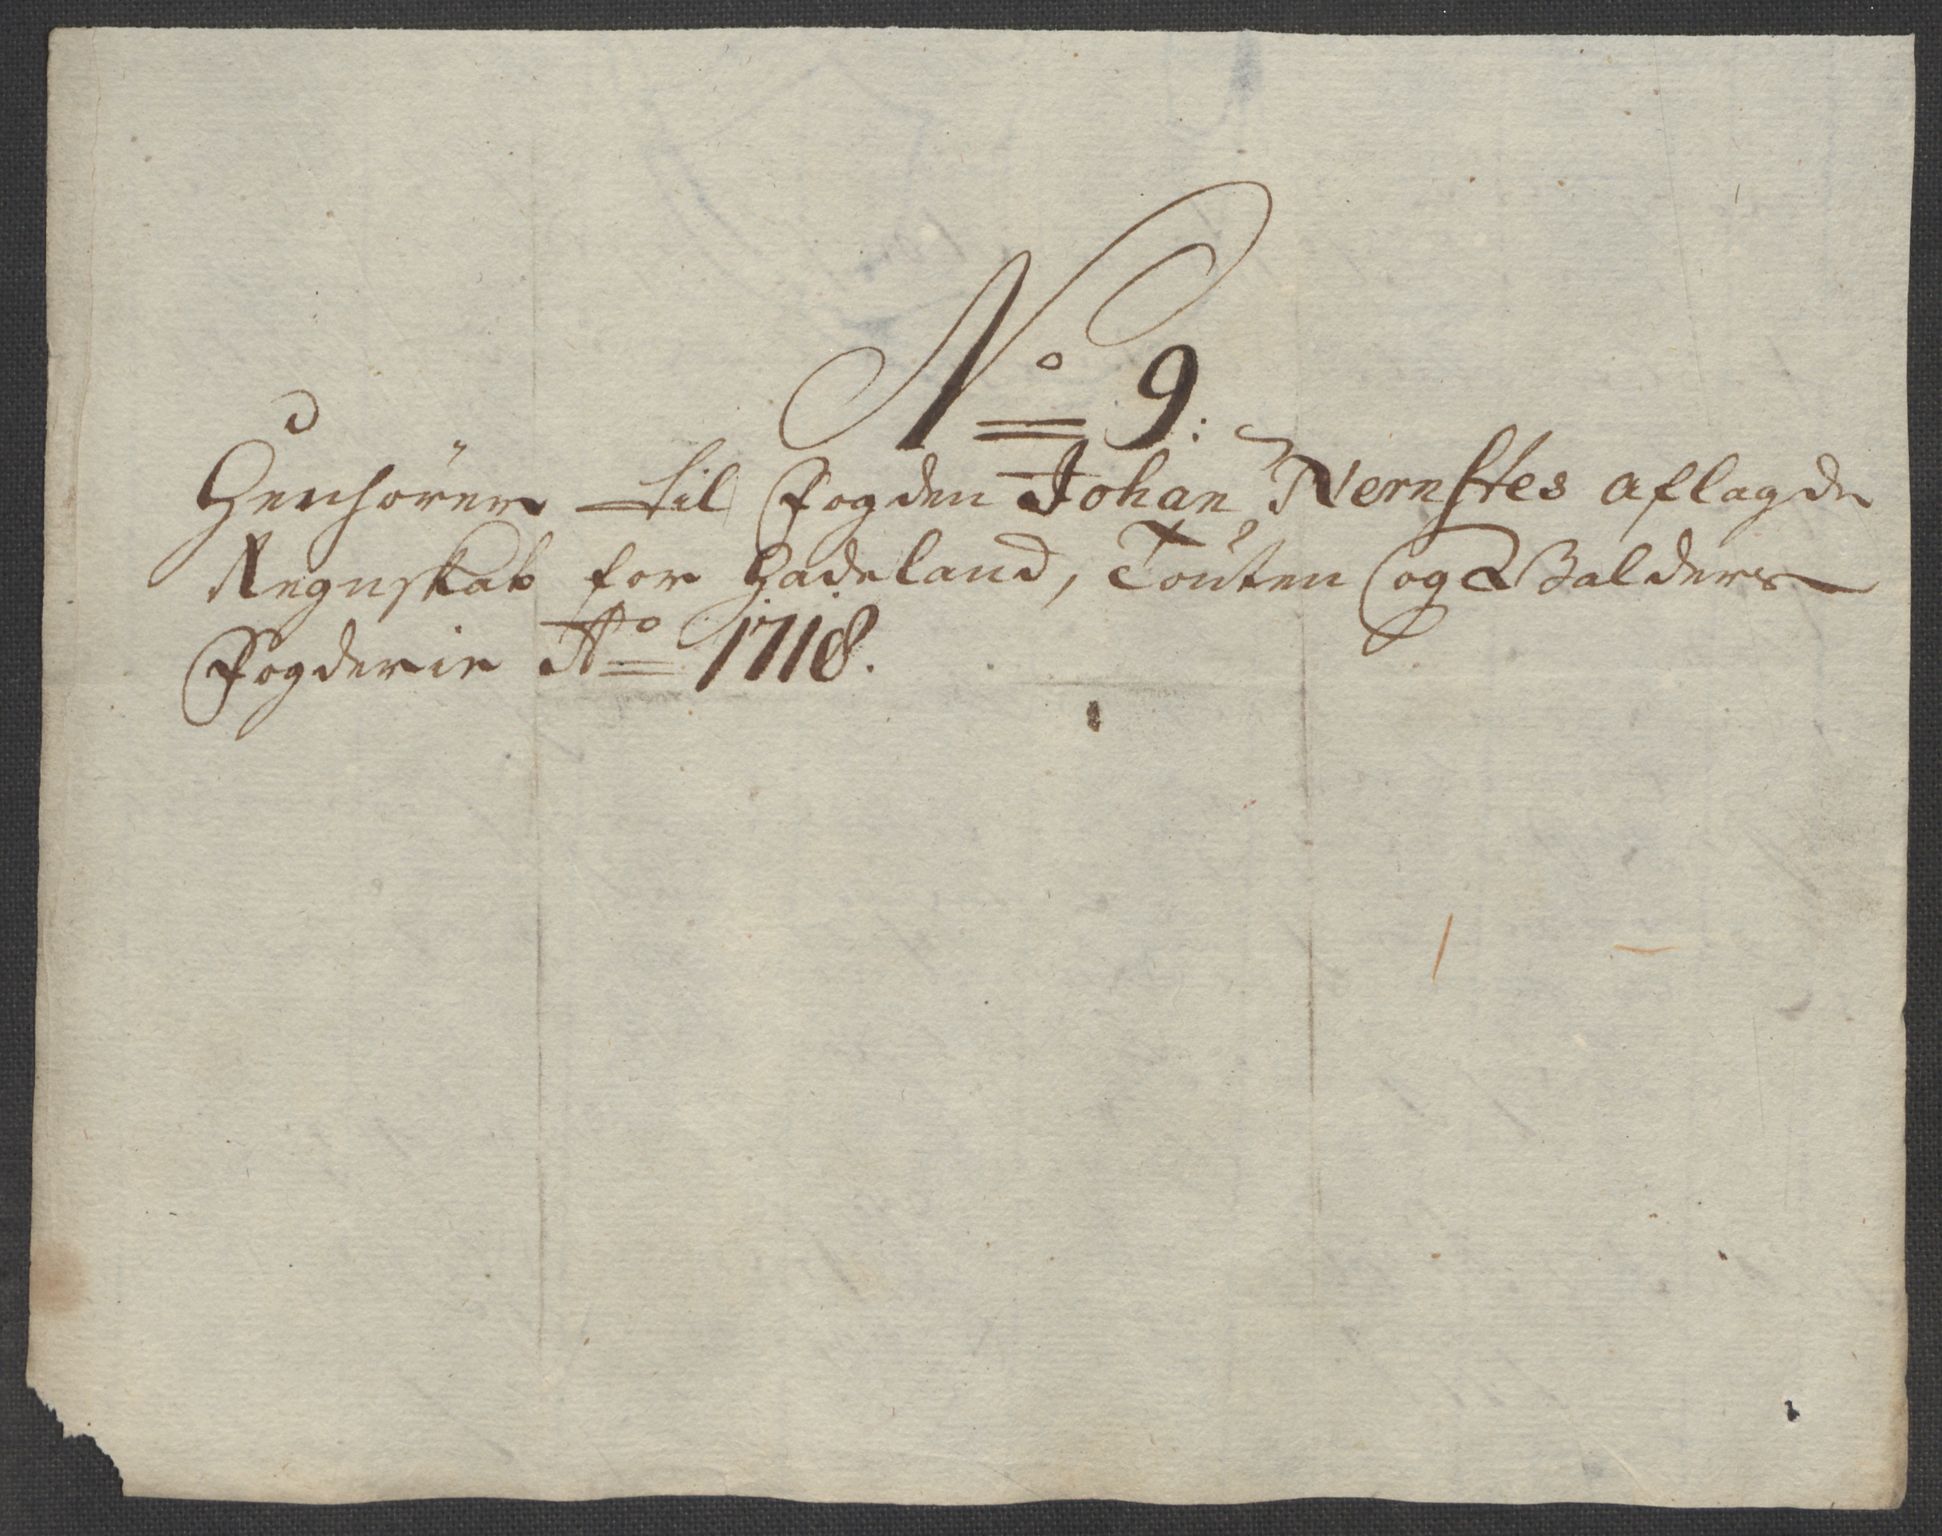 No 9:
Henhörer til Fogden Johan Nernstes aflagde
Regnskab for Hadeland, Touten og Walders
Fogderie Ao 1718.